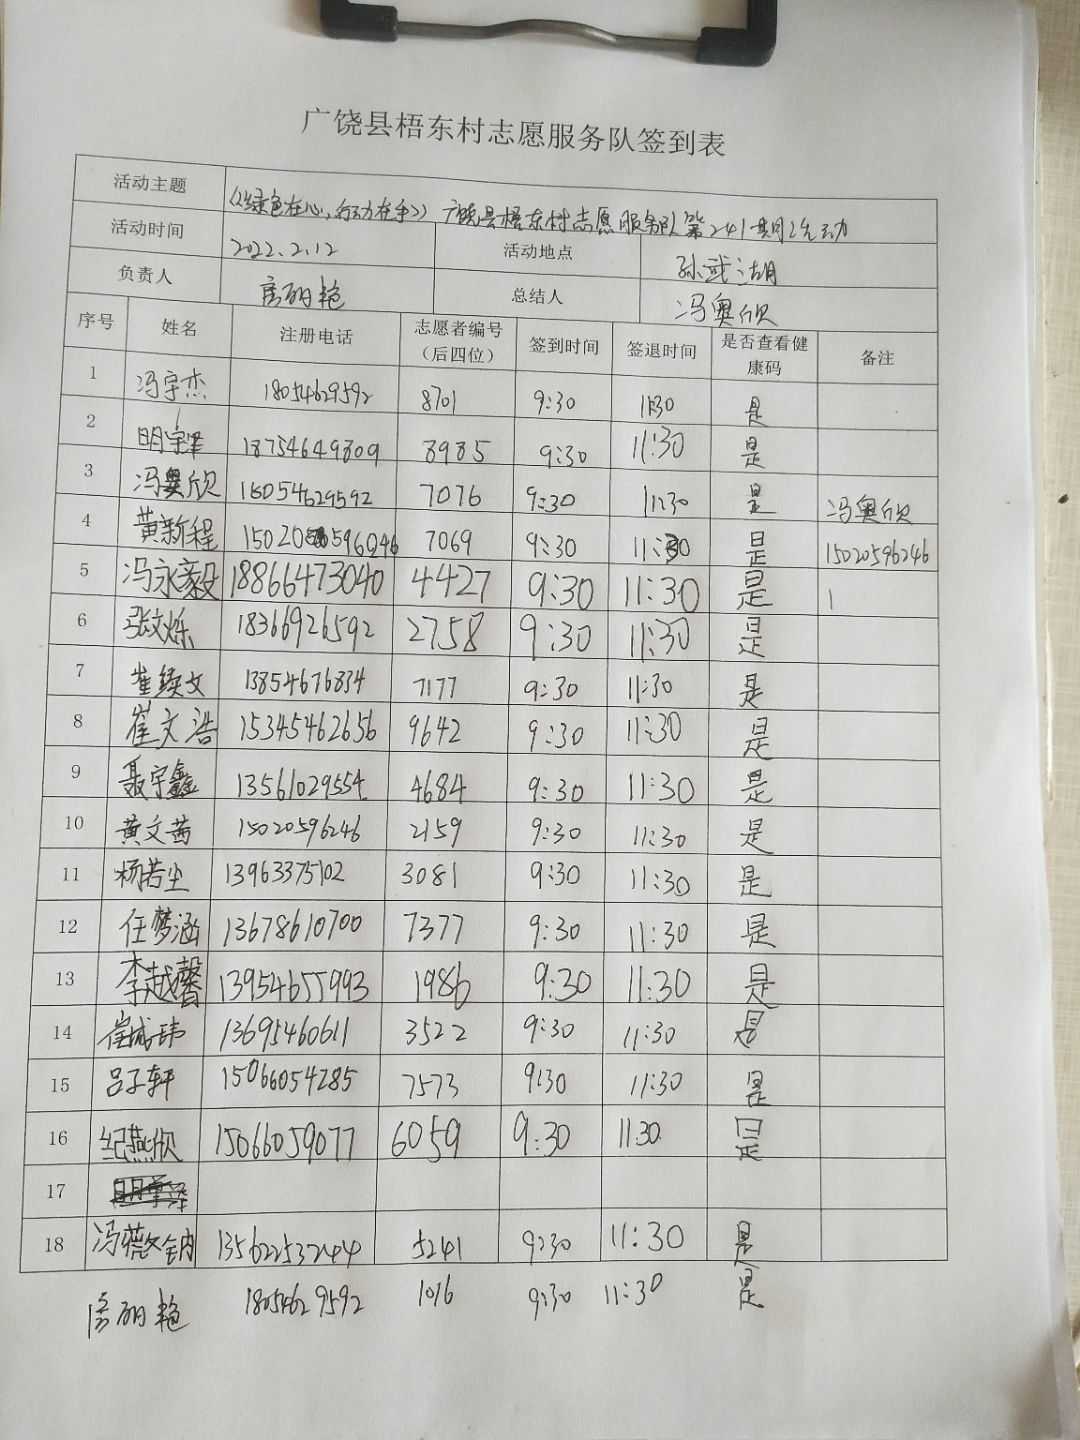 广饶县梧东村志愿服务队签到表
活动主题 《绿色在心，行动在手》广饶县梧东村志愿服务队第241期活动
活动时间 2022.2.12 活动地点 孙武湖
负责人 房丽艳 总结人 冯奥欣
序号 姓名 注册电话 志愿者编号（后四位） 签到时间 签退时间 是否查看健康码 备注
1 冯宇杰 18054629592 8701 9:30 11:30 是
2 明宇泽 18754649809 8985 9:30 11:30 是
3 冯奥欣 18054629592 7076 9:30 11:30 是 冯奥欣
4 黄新程 15020596246 7069 9:30 11:30 是 15020596246
5 冯永毅 18866473040 4427 9:30 11:30 是
6 张文烁 18366926592 2758 9:30 11:30 是
7 崔续文 13854676834 7177 9:30 11:30 是
8 崔文浩 15345462656 9642 9:30 11:30 是
9 聂宇鑫 13561029554 4684 9:30 11:30 是
10 黄文茜 15020596246 2159 9:30 11:30 是
11 杨若尘 13963375102 3081 9:30 11:30 是
12 任梦涵 13678610700 7377 9:30 11:30 是
13 李越馨 13954655993 1986 9:30 11:30 是
14 崔城玮 13695460611 3522 9:30 11:30 是
15 吕子轩 15066054285 7573 9:30 11:30 是
16 纪燕欣 15066059077 6059 9:30 11:30 是
17
18 冯薇 13562253244 5241 9:30 11:30 是
房丽艳 18054629592 1016 9:30 11:30 是